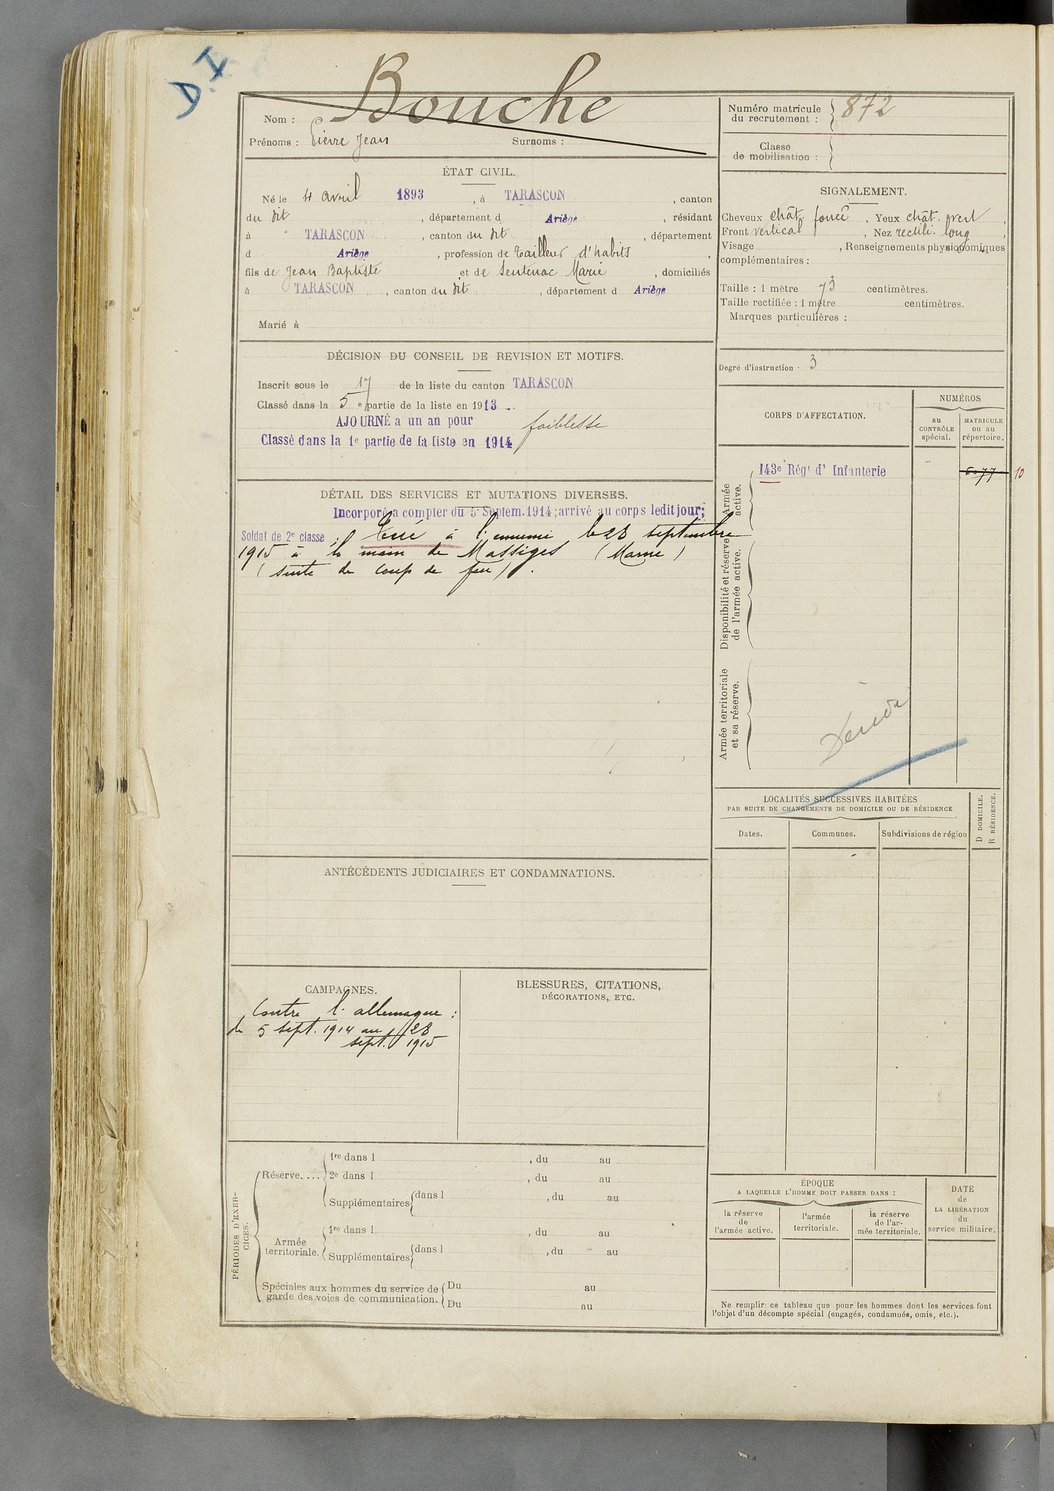 D.I
Bouche
Nom :
Prénoms : Pierre Jean Surnoms :
ÉTAT CIVIL.
Né le 4 avril 1893, à TARASCON, canton
du dit, département d Ariège, résidant
à TARASCON, canton du dit, département
d Ariège, profession de tailleur d'habits,
fils de Jean Baptiste et de Sentenac Marie, domiciliés
à TARASCON, canton du dit, département d Ariège
Marié à
DÉCISION DU CONSEIL DE REVISION ET MOTIFS.
Inscrit sous le 17 de la liste du canton TARASCON
Classé dans la 5e partie de la liste en 1913
AJOURNÉ a un an pour faiblesse
Classé dans la 1e partie de la liste en 1914
DÉTAIL DES SERVICES ET MUTATIONS DIVERSES.
Incorporé a compter du 5 Septem. 1914; arrivé au corps ledit jour;
Soldat de 2e classe; Tué à l'ennemi le 28 septembre
1915 à la main de Massiges (Marne)
(suite de coup de feu).
ANTÉCÉDENTS JUDICIAIRES ET CONDAMNATIONS.
CAMPAGNES.
Contre l'allemagne :
du 5 sept. 1914 au 28
sept. 1915
BLESSURES, CITATIONS,
DÉCORATIONS, ETC.
PÉRIODES D'EXER-
CICES.
Réserve....
1re dans l , du au
2e dans l , du au
Supplémentaires dans l , du au
Armée
territoriale.
1re dans l , du au
Supplémentaires dans l , du au
Spéciales aux hommes du service de
garde des voies de communication.
Du au
Du au
Numéro matricule
du recrutement : 872
Classe
de mobilisation :
SIGNALEMENT.
Cheveux chât. foncé. Yeux chât. vert,
Front vertical, Nez rectili. long,
Visage , Renseignements physionomiques
complémentaires :
Taille : 1 mètre 73 centimètres.
Taille rectifiée : 1 mètre centimètres.
Marques particulières :
Degré d'instruction - 3
CORPS D'AFFECTATION.
NUMÉROS
au
CONTRÔLE
spécial.
MATRICULE
ou au
répertoire.
Armée
active.
143e Régt d' Infanterie
10
Disponibilité et réserve
de l'armée active.
Armée territoriale
et sa réserve.
LOCALITÉS SUCCESSIVES HABITÉES
PAR SUITE DE CHANGEMENTS DE DOMICILE OU DE RÉSIDENCE
D DOMICILE.
R RÉSIDENCE.
Dates.
Communes.
Subdivisions de région
ÉPOQUE
A LAQUELLE L'HOMME DOIT PASSER DANS :
la réserve
de
l'armée active.
l'armée
territoriale.
la réserve
de l'ar-
mée territoriale.
DATE
de
LA LIBÉRATION
du
service militaire.
Ne remplir ce tableau que pour les hommes dont les services font
l'objet d'un décompte spécial (engagés, condamnés, omis, etc.).